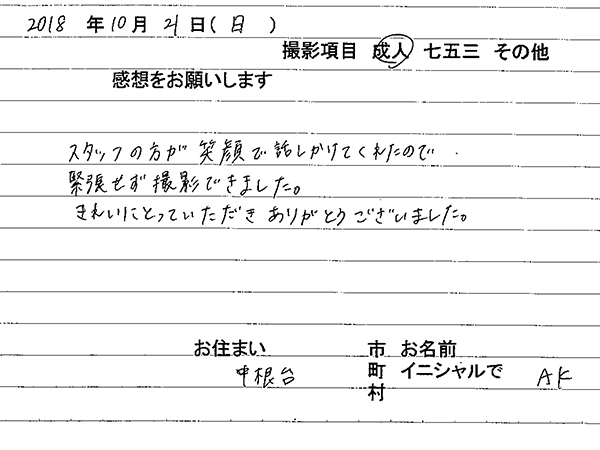 2018 年 10 月 21 日( 日 )
撮影項目 成人 七五三 その他
感想をお願いします
スタッフの方が笑顔で話しかけてくれたので
緊張せず撮影できました。
きれいにとっていただきありがとうございました。
お住まい 市 お名前
中根台 町 イニシャルで AK
村